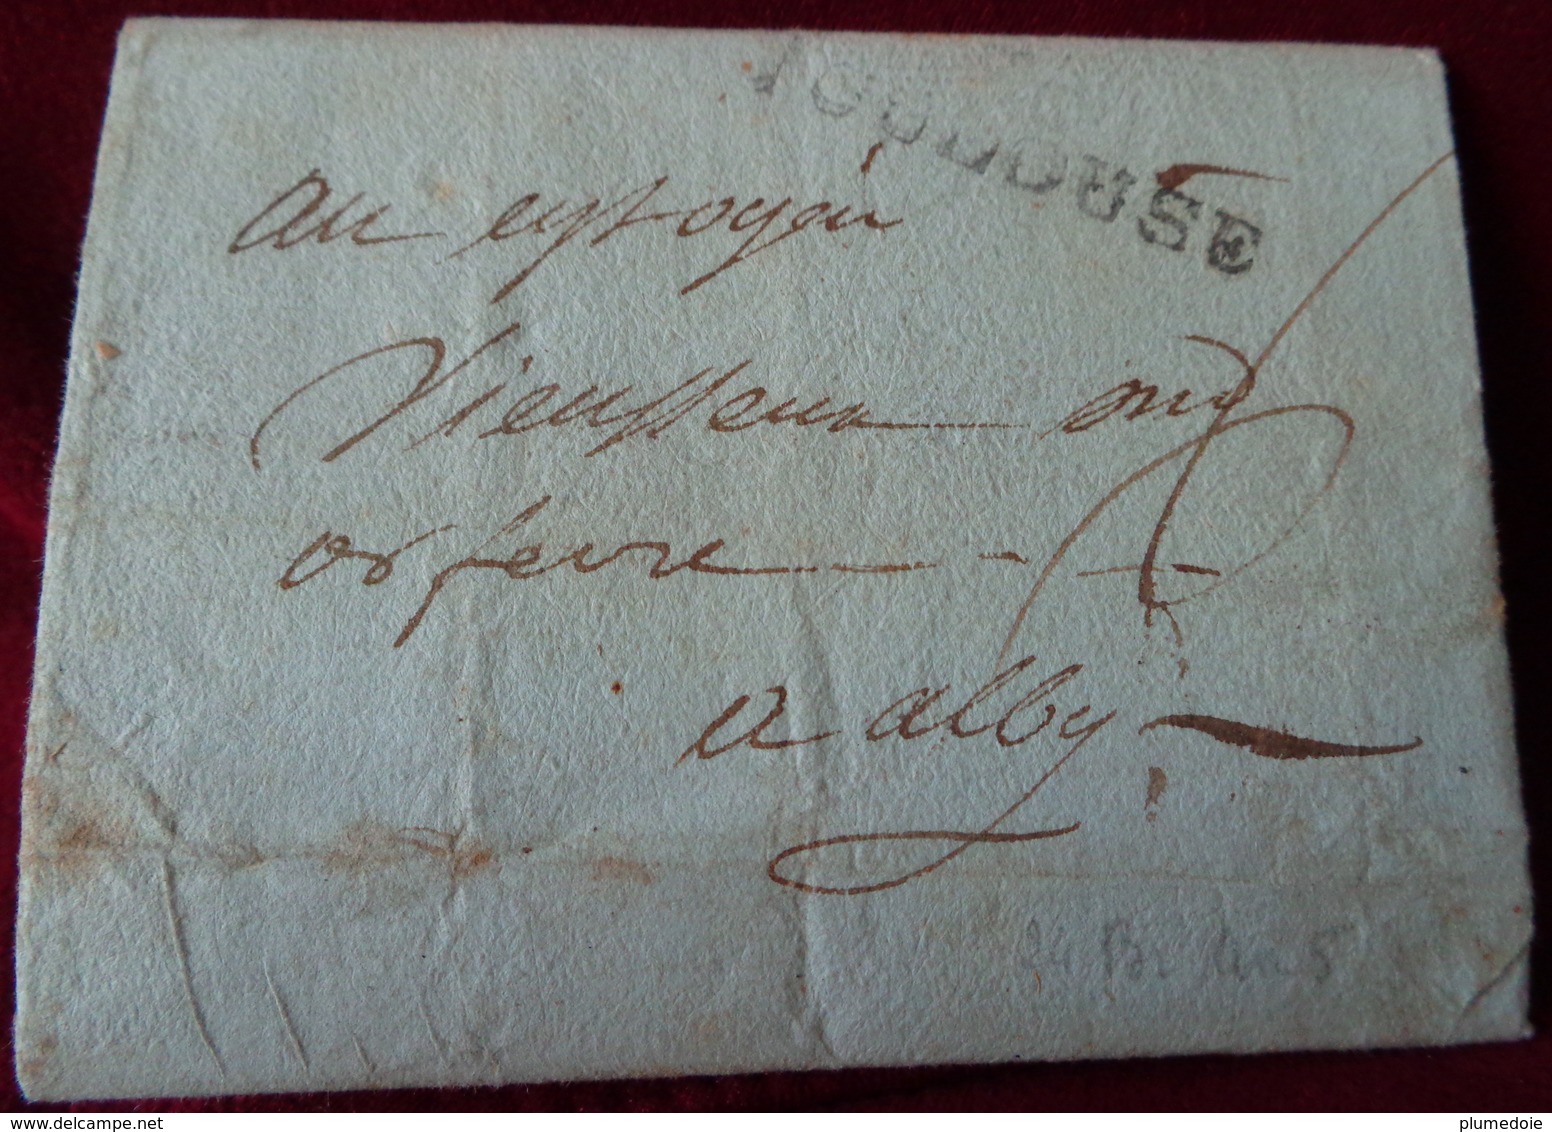 TOULOUSE
au citoyen
Vieusseux md
orfevre
a alby
an 5
www.delcampe.net
plumedoie